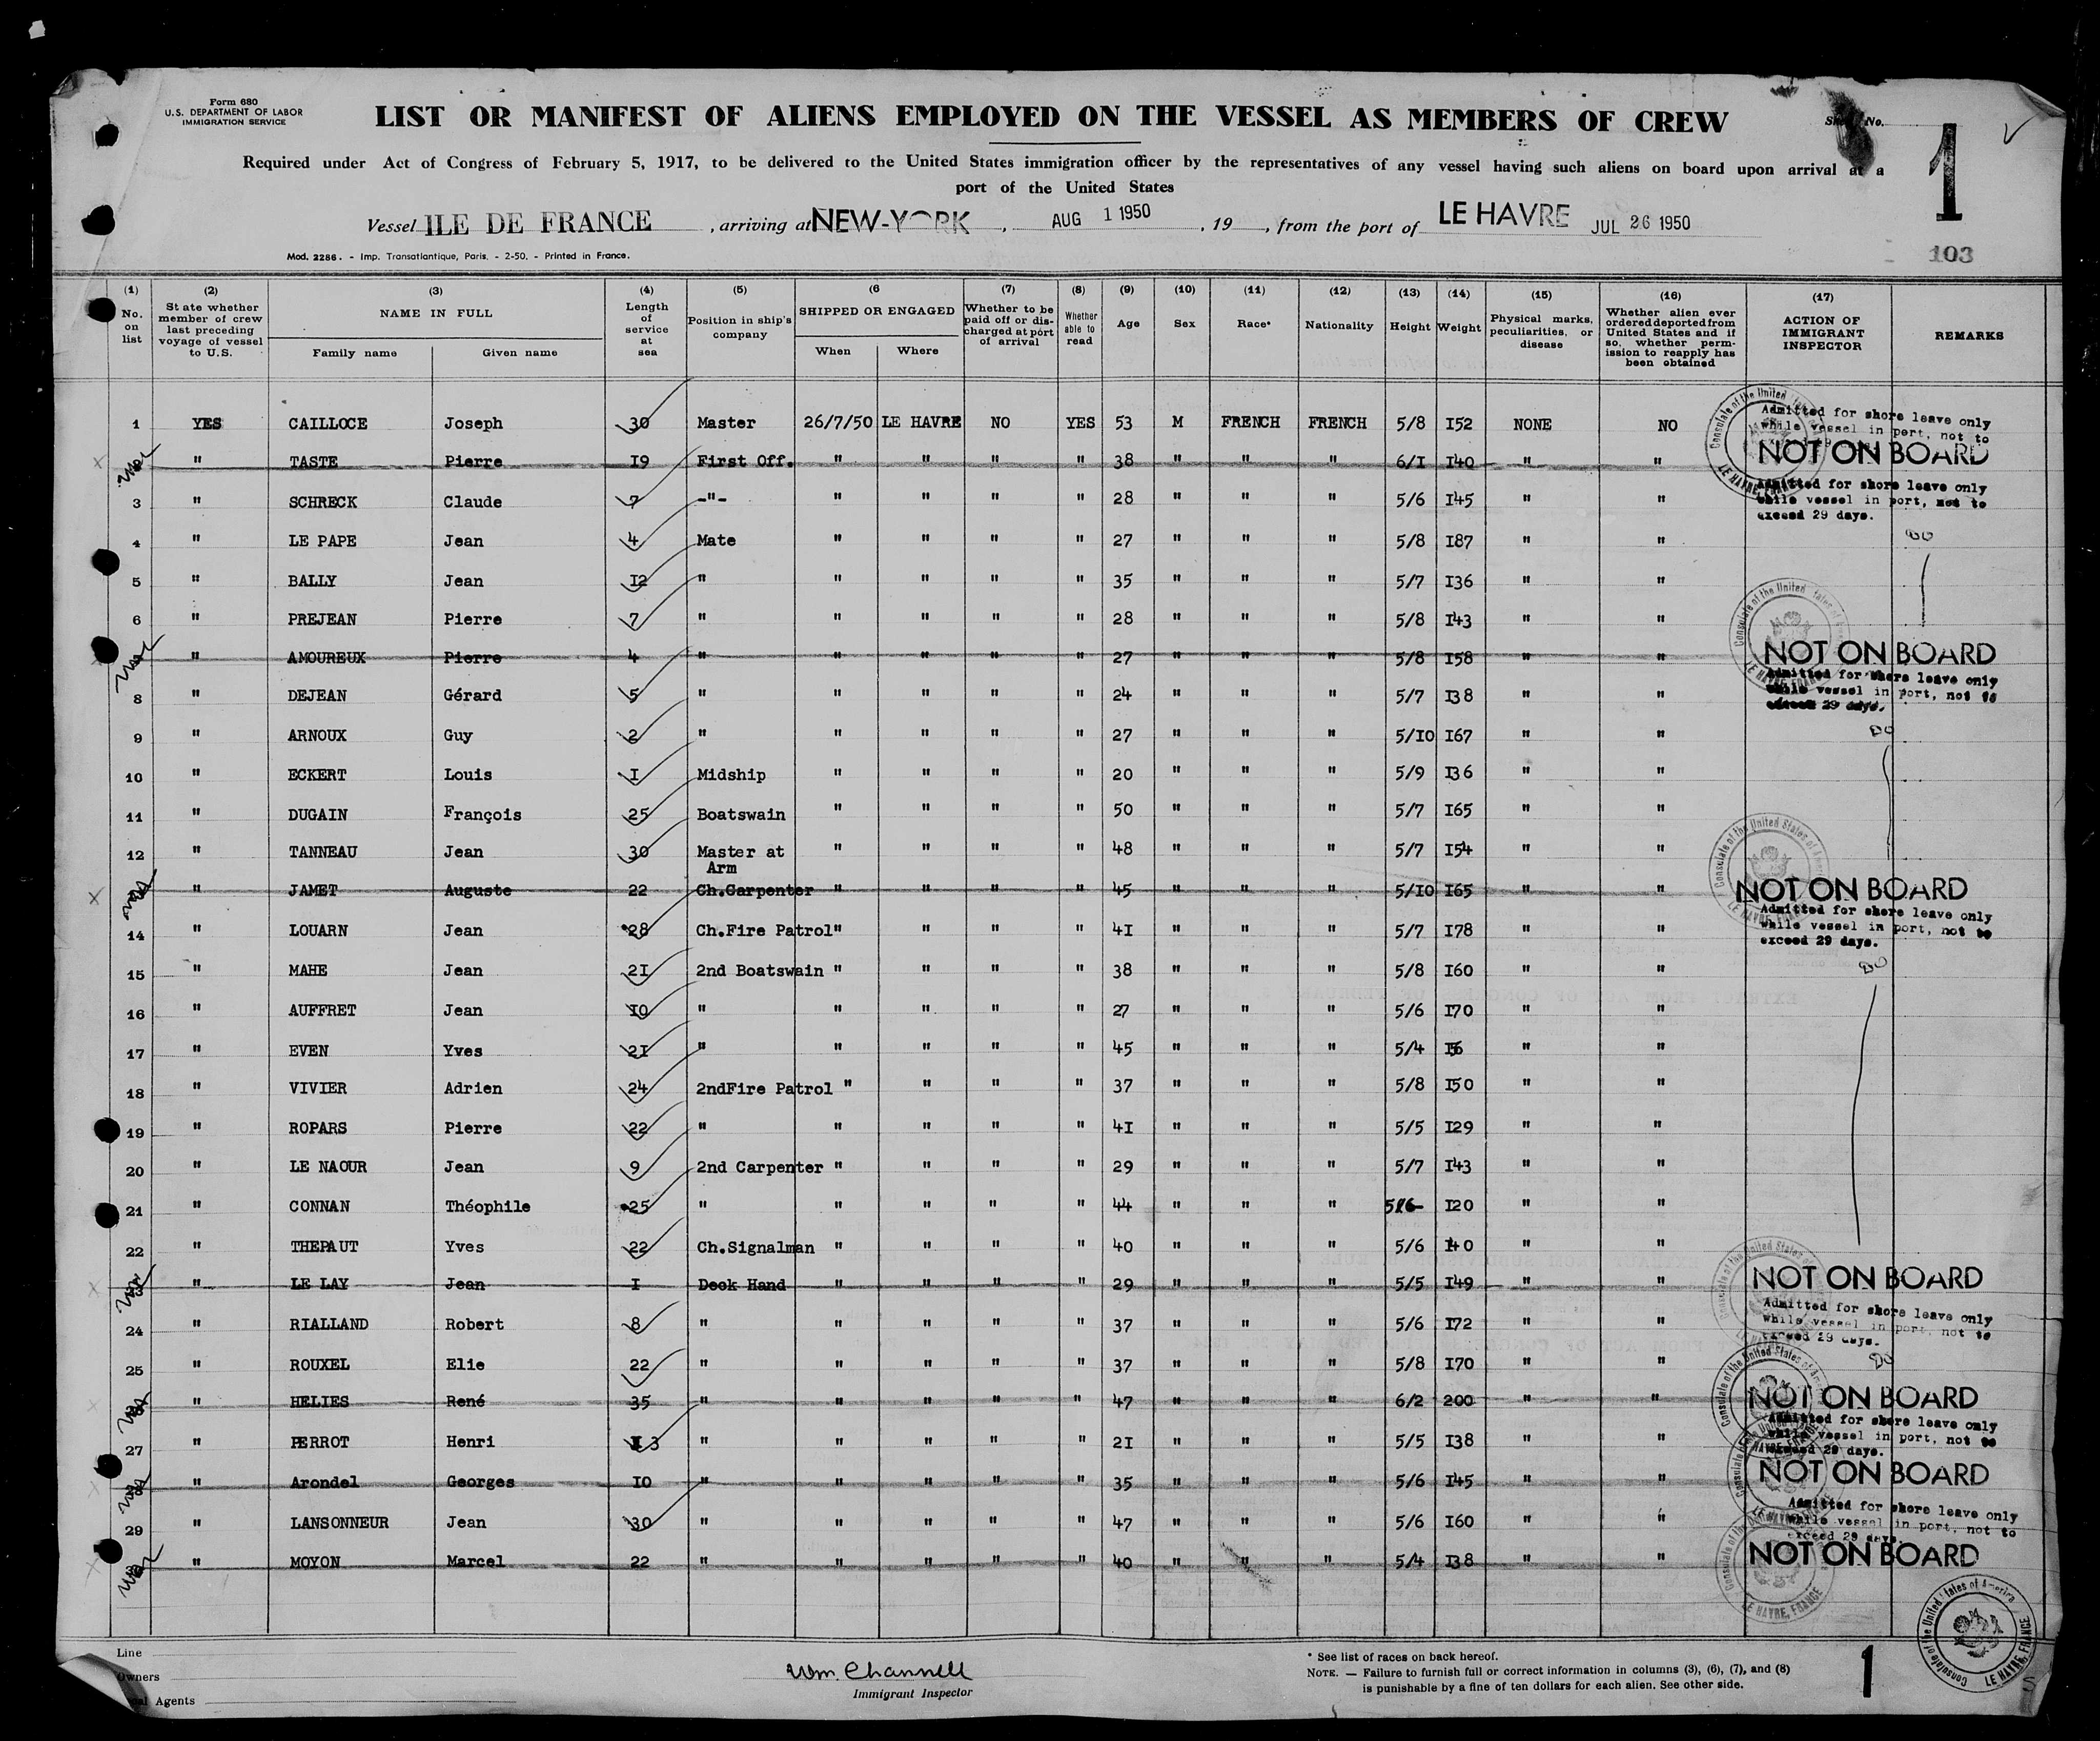 Form 680
U.S. DEPARTMENT OF LABOR
IMMIGRATION SERVICE
LIST OR MANIFEST OF ALIENS EMPLOYED ON THE VESSEL AS MEMBERS OF CREW
No.
1
Required under Act of Congress of February 5, 1917, to be delivered to the United States immigration officer by the representatives of any vessel having such aliens on board upon arrival at a
port of the United States
Vessel ILE DE FRANCE , arriving at NEW-YORK , AUG 1 1950 , 19 , from the port of LE HAVRE JUL 26 1950
Mod. 2286. - Imp. Transatlantique, Paris. - 2-50. - Printed in France.
103
(1) No. on list (2) State whether member of crew last preceding voyage of vessel to U.S. (3) NAME IN FULL Family name Given name (4) Length of service at sea (5) Position in ship's company (6 SHIPPED OR ENGAGED When Where (7) Whether to be paid off or discharged at port of arrival (8) Whether able to read (9) Age (10) Sex (11) Race* (12) Nationality (13) Height (14) Weight (15) Physical marks, peculiarities, or disease (16) Whether alien ever ordered deported from United States and if so, whether permission to reapply has been obtained (17) ACTION OF IMMIGRANT INSPECTOR REMARKS
1 YES CAILLOCE Joseph 30 Master 26/7/50 LE HAVRE NO YES 53 M FRENCH FRENCH 5/8 I52 NONE NO Admitted for shore leave only while vessel in port, not to
" TASTE Pierre I9 First Off. " " " " 38 " " " 6/I I40 " " NOT ON BOARD
3 " SCHRECK Claude 7 -"- " " " " 28 " " " 5/6 I45 " " Admitted for shore leave only while vessel in port, not to exceed 29 days.
4 " LE PAPE Jean 4 Mate " " " " 27 " " " 5/8 I87 " " DO
5 " BALLY Jean I2 " " " " " 35 " " " 5/7 I36 " "
6 " PREJEAN Pierre 7 " " " " " 28 " " " 5/8 I43 " "
" AMOUREUX Pierre 4 " " " " " 27 " " " 5/8 I58 " " NOT ON BOARD
8 " DEJEAN Gérard 5 " " " " " 24 " " " 5/7 I38 " " Admitted for shore leave only while vessel in port, not to exceed 29 days.
9 " ARNOUX Guy 2 " " " " " 27 " " " 5/I0 I67 " " DO
10 " ECKERT Louis I Midship " " " " 20 " " " 5/9 I36 " "
11 " DUGAIN François 25 Boatswain " " " " 50 " " " 5/7 I65 " "
12 " TANNEAU Jean 30 Master at Arm " " " " 48 " " " 5/7 I54 " "
" JAMET Auguste 22 Ch.Carpenter " " " " 45 " " " 5/I0 I65 " " NOT ON BOARD
14 " LOUARN Jean 28 Ch.Fire Patrol " " " " 4I " " " 5/7 I78 " " Admitted for shore leave only while vessel in port, not to exceed 29 days.
15 " MAHE Jean 2I 2nd Boatswain " " " " 38 " " " 5/8 I60 " " DO
16 " AUFFRET Jean I0 " " " " " 27 " " " 5/6 I70 " "
17 " EVEN Yves 2I " " " " " 45 " " " 5/4 " "
18 " VIVIER Adrien 24 2ndFire Patrol " " " " 37 " " " 5/8 I50 " "
19 " ROPARS Pierre 22 " " " " " 4I " " " 5/5 I29 " "
20 " LE NAOUR Jean 9 2nd Carpenter " " " " 29 " " " 5/7 I43 " "
21 " CONNAN Théophile 25 " " " " " 44 " " " I20 " "
22 " THEPAUT Yves 22 Ch.Signalman " " " " 40 " " " 5/6 I40 " "
" LE LAY Jean I Deck Hand " " " " 29 " " " 5/5 I49 " " NOT ON BOARD
24 " RIALLAND Robert 8 " " " " " 37 " " " 5/6 I72 " " Admitted for shore leave only while vessel in port, not to exceed 29 days.
25 " ROUXEL Elie 22 " " " " " 37 " " " 5/8 I70 " " DO
" HELIES René 35 " " " " " 47 " " " 6/2 200 " " NOT ON BOARD
27 " PERROT Henri 3 " " " " " 2I " " " 5/5 I38 " " Admitted for shore leave only while vessel in port, not to exceed 29 days.
" Arondel Georges I0 " " " " " 35 " " " 5/6 I45 " " NOT ON BOARD
29 " LANSONNEUR Jean 30 " " " " " 47 " " " 5/6 I60 " " Admitted for shore leave only while vessel in port, not to exceed 29 days.
" MOYON Marcel 22 " " " " " 40 " " " 5/4 I38 " " NOT ON BOARD
Consulate of the United States of America LE HAVRE, FRANCE
Line
Owners
Agents
Wm. Channell
Immigrant Inspector
* See list of races on back hereof.
NOTE. — Failure to furnish full or correct information in columns (3), (6), (7), and (8)
is punishable by a fine of ten dollars for each alien. See other side.
1